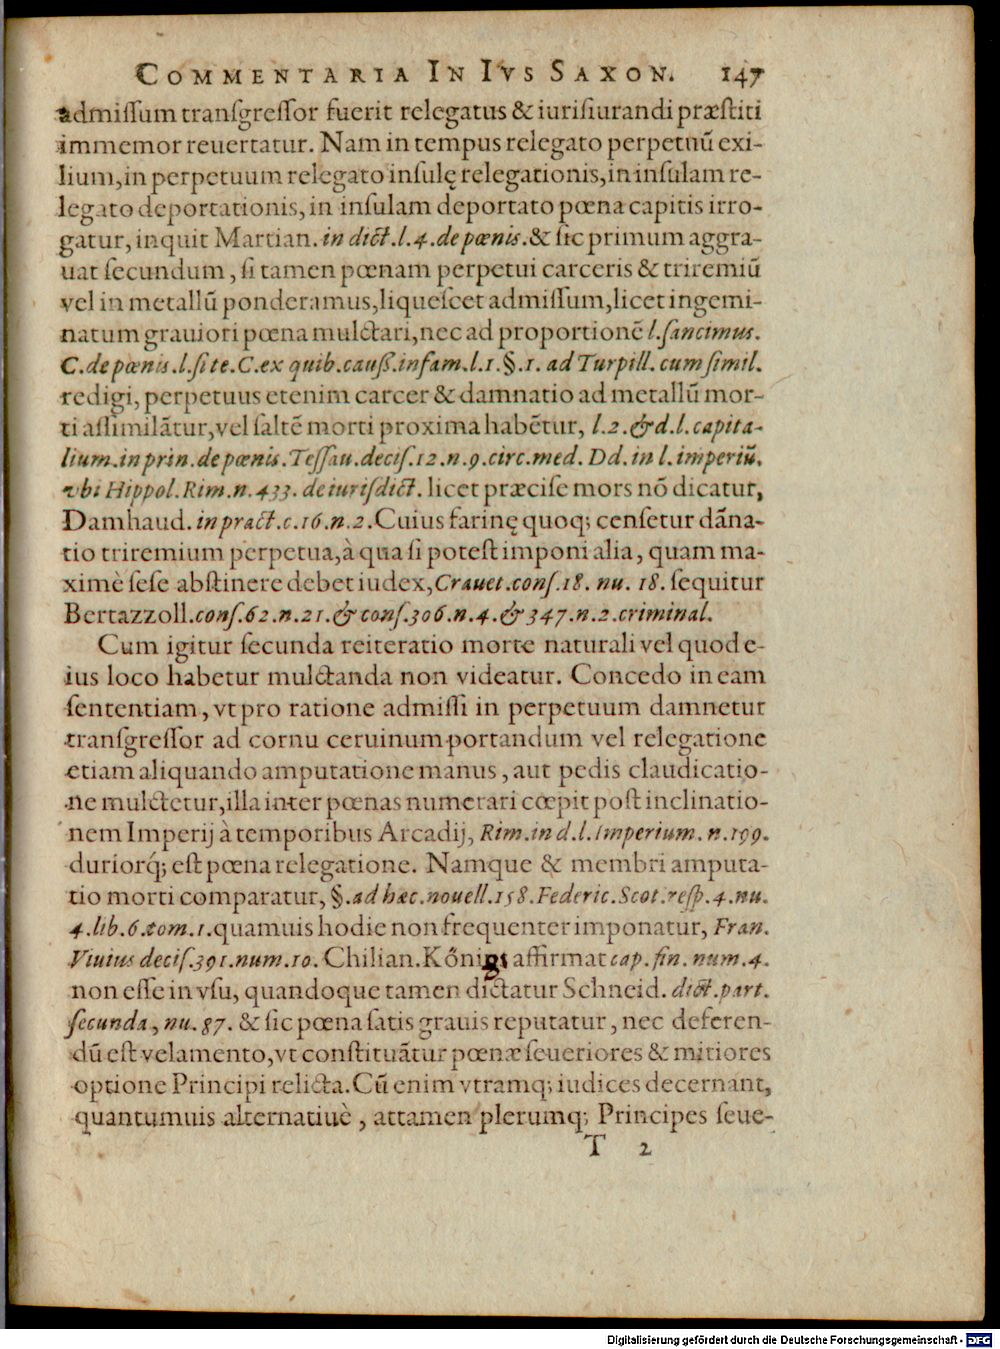 COMMENTARIA IN IVS SAXON. 147
admiſſum tranſgreſſor fuerit relegatus & iuriſiurandi præſtiti
immemor reuertatur. Nam in tempus relegato perpetuũ exi-
lium, in perpetuum relegato inſulę relegationis, in inſulam re-
legato deportationis, in inſulam deportato pœna capitis irro-
gatur, inquit Martian. in dict. l. 4. de pœnis. & ſic primum aggra-
uat ſecundum, ſi tamen pœnam perpetui carceris & triremiũ
vel in metallũ ponderamus, liqueſcet admiſſum, licet ingemi-
natum grauiori pœna mulctari, nec ad proportionẽ l. ſancimus.
C. de pœnis. l. ſi te. C. ex quib. cauſſ. infam. l. 1. §. 1. ad Turpill. cum ſimil.
redigi, perpetuus etenim carcer & damnatio ad metallũ mor-
ti aſſimilãtur, vel ſaltẽ morti proxima habẽtur, l. 2. & d. l. capita-
lium. in prin. de pœnis. Teſſau. deciſ. 12. n. 9. circ. med. Dd. in l. imperiũ.
vbi Hippol. Rim. n. 433. de iurisdict. licet præciſe mors nõ dicatur,
Damhaud. in pract. c. 16. n. 2. Cuius farinę quoq; cenſetur dãna-
tio triremium perpetua, à qua ſi poteſt imponi alia, quam ma-
ximè ſeſe abſtinere debet iudex, Crauet. conſ. 18. nu. 18. ſequitur
Bertazzoll. conſ. 62. n. 21. & conſ. 306. n. 4. & 347. n. 2. criminal.
Cum igitur ſecunda reiteratio morte naturali vel quod e-
ius loco habetur mulctanda non videatur. Concedo in eam
ſententiam, vt pro ratione admiſſi in perpetuum damnetur
tranſgreſſor ad cornu ceruinum portandum vel relegatione
etiam aliquando amputatione manus, aut pedis claudicatio-
ne mulctetur, illa inter pœnas numerari cœpit poſt inclinatio-
nem Imperij à temporibus Arcadij, Rim. in d. l. Imperium. n. 199.
duriorq́; eſt pœna relegatione. Namque & membri amputa-
tio morti comparatur, §. ad hæc. nouell. 158. Federic. Scot. reſp. 4. nu.
4. lib. 6. tom. 1. quamuis hodie non frequenter imponatur, Fran.
Viuius deciſ. 391. num. 10. Chilian. Kőnig affirmat cap. fin. num. 4.
non eſſe in vſu, quandoque tamen dictatur Schneid. dict. part.
ſecunda, nu. 87. & ſic pœna ſatis grauis reputatur, nec deferen-
dũ eſt velamento, vt conſtituãtur pœnæ ſeueriores & mitiores
optione Principi relicta. Cũ enim vtramq; iudices decernant,
quantumuis alternatiuè, attamen plerumq; Principes ſeue-
T 2
Digitalisierung gefördert durch die Deutsche Forschungsgemeinschaft - DFG